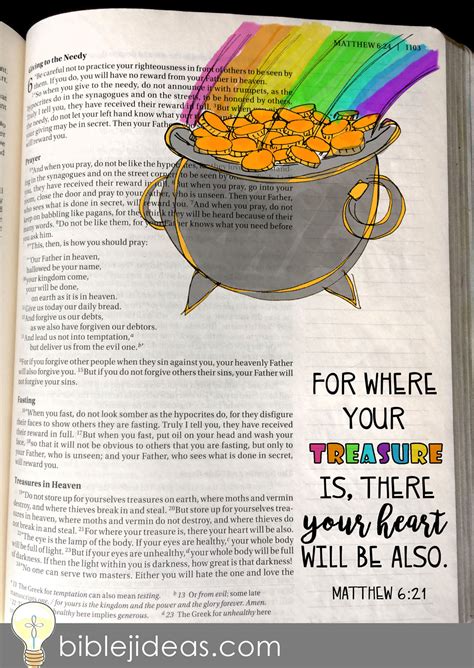 MATTHEW 6:24 | 1103
Giving to the Needy
6 "Be careful not to practice your righteousness in front of others to be seen by
them. If you do, you will have no reward from your Father in heaven.
2"So when you give to the needy, do not announce it with trumpets, as the
hypocrites do in the synagogues and on the streets, to be honored by others.
Truly I tell you, they have received their reward in full. 3But when you give to the
needy, do not let your left hand know what your
your giving may be in secret. Then your Father,
Prayer
5"And when you pray, do not be like the hypocrites,
ing in the synagogues and on the street corners to be seen by
you, they have received their reward in full. 6But when you pray, go into your
room, close the door and pray to your Father, who is unseen. Then your Father,
who sees what is done in secret, will reward you. 7And when you pray, do not
keep on babbling like pagans, for they think they will be heard because of their
many words. 8Do not be like them, for your Father knows what you need before
you ask him.
9"This, then, is how you should pray:
"Our Father in heaven,
hallowed be your name,
10your kingdom come,
your will be done,
on earth as it is in heaven.
11Give us today our daily bread.
12And forgive us our debts,
as we also have forgiven our debtors.
13And lead us not into temptation,a
but deliver us from the evil one.b'
14For if you forgive other people when they sin against you, your heavenly Father
will also forgive you. 15But if you do not forgive others their sins, your Father will
not forgive your sins.
Fasting
16"When you fast, do not look somber as the hypocrites do, for they disfigure
their faces to show others they are fasting. Truly I tell you, they have received
their reward in full. 17But when you fast, put oil on your head and wash your
face, 18so that it will not be obvious to others that you are fasting, but only to
your Father, who is unseen; and your Father, who sees what is done in secret,
will reward you.
Treasures in Heaven
19"Do not store up for yourselves treasures on earth, where moths and vermin
destroy, and where thieves break in and steal. 20But store up for yourselves trea-
sures in heaven, where moths and vermin do not destroy, and where thieves do
not break in and steal. 21For where your treasure is, there your heart will be also.
22"The eye is the lamp of the body. If your eyes are healthy,c your whole body
will be full of light. 23But if your eyes are unhealthy,d your whole body will be full
of darkness. If then the light within you is darkness, how great is that darkness!
24"No one can serve two masters. Either you will hate the one and love the
a 13 The Greek for temptation can also mean testing. b 13 Or from evil; some late
manuscripts one, / for yours is the kingdom and the power and the glory forever. Amen.
healthy here implies generous. d 23 The Greek for unhealthy here implies stingy.
FOR WHERE
YOUR
TREASURE
IS, THERE
your heart
WILL BE ALSO.
MATTHEW 6:21
biblejideas.com